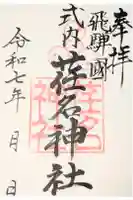 奉拝
飛騨國
式内
荏名神社
令和七年 月 日
荏名
神社